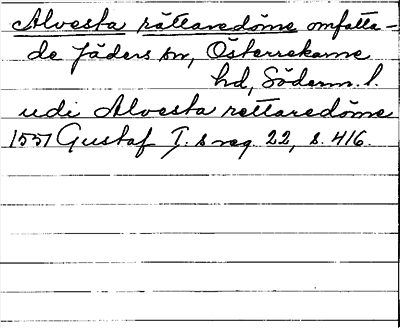 Alvesta rättaredöme omfatta-
de Jäders sn, Österrekarne
hd, Söderm. l.
udi Alvesta rettaredöme
1551 Gustaf I.s reg. 22, s. 416.